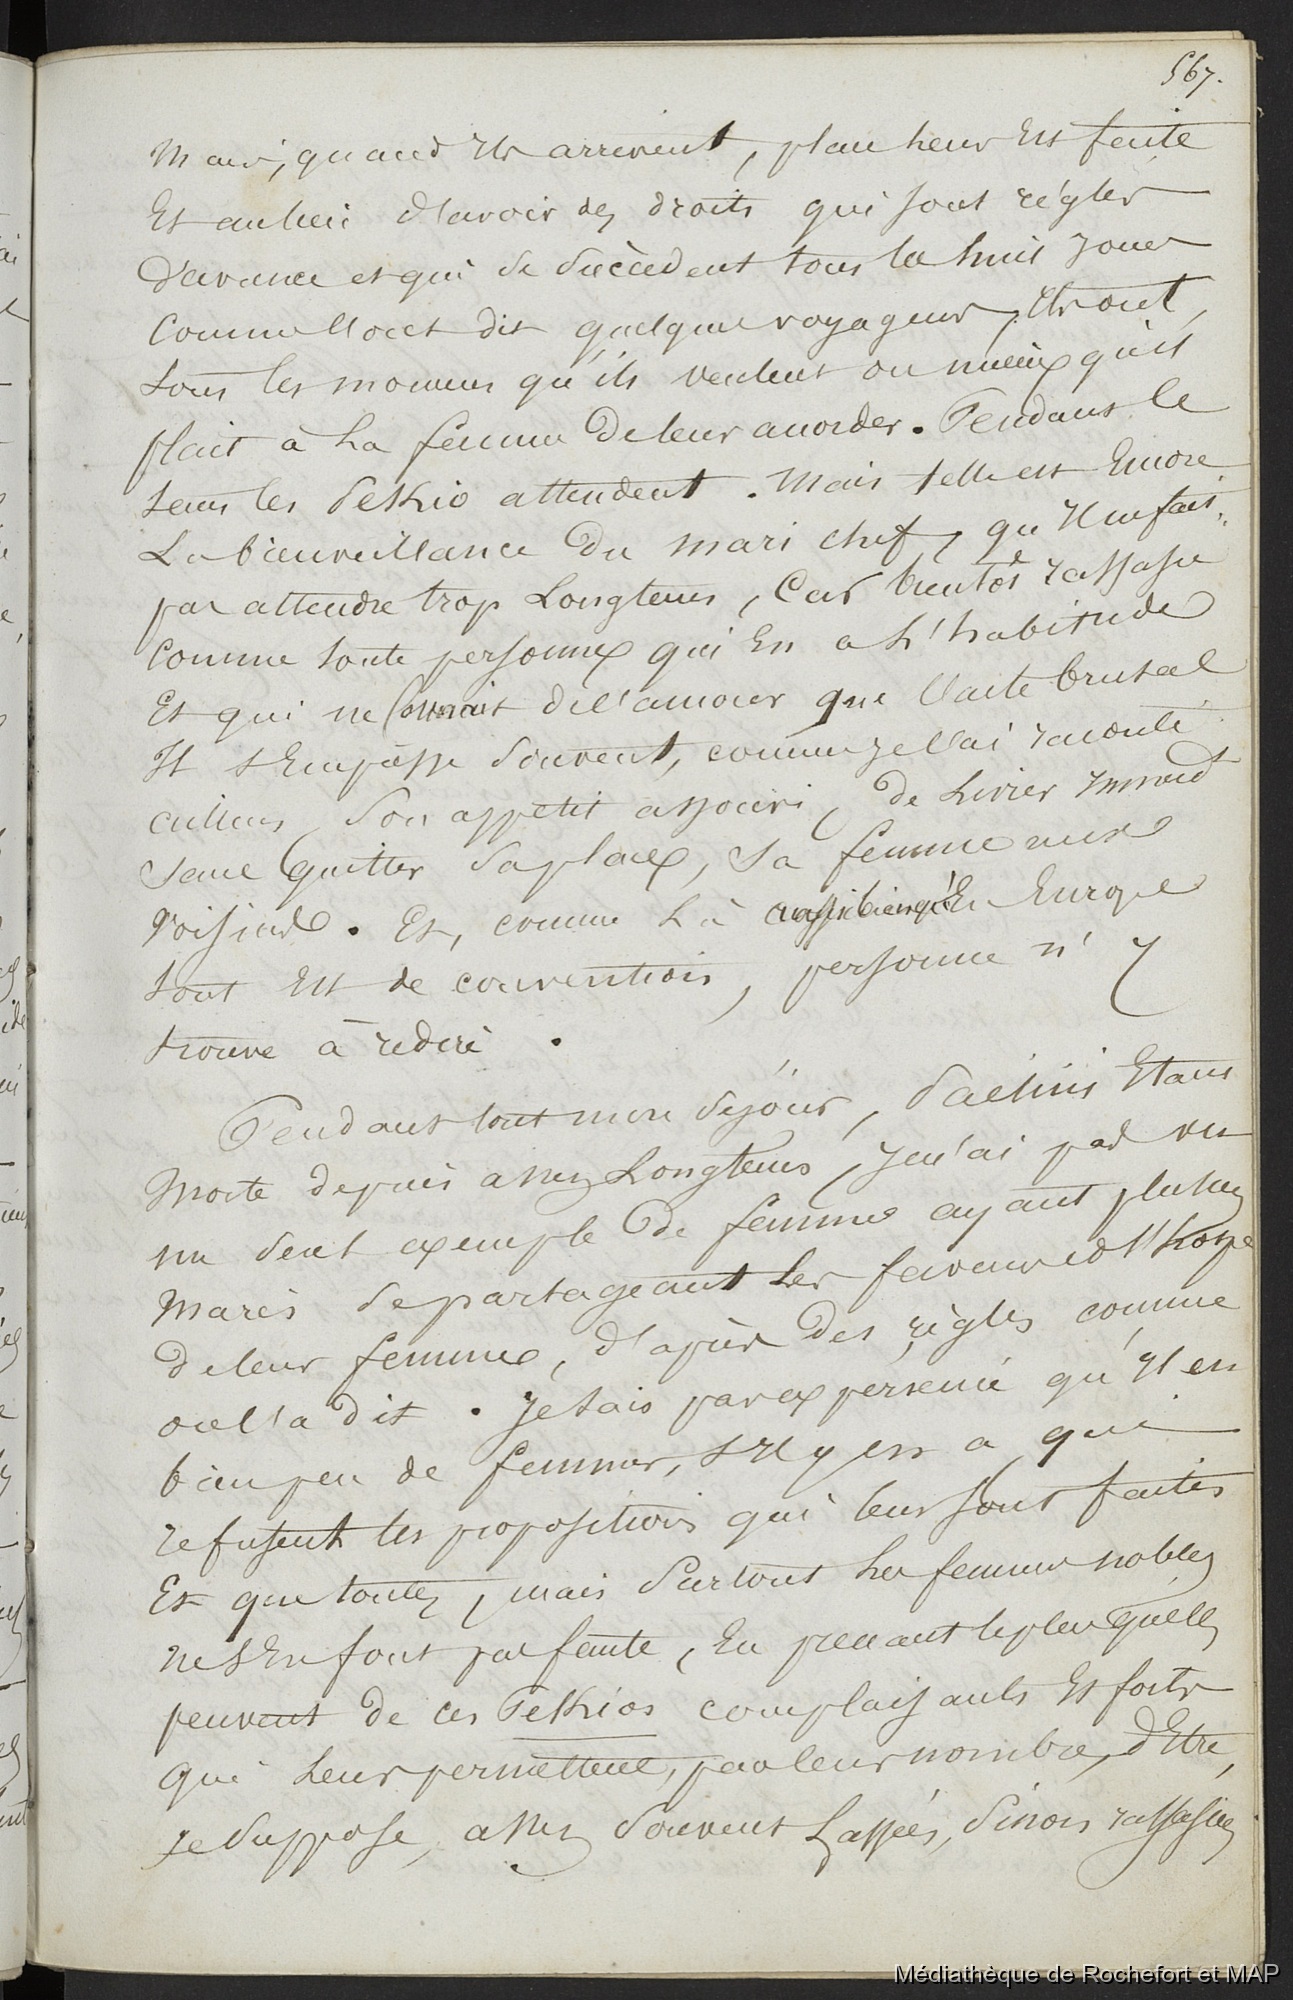 567.
Mais, quand ils arrivent, place leur est faite
Et au lieu d'avoir des droits qui sont réglés
D'avance et qui se succèdent tous les huit jours
Comme l'ont dit quelques voyageurs, ils ont,
tous les moments qu'ils veulent ou mieux qu'il
plait à la femme de leur accorder. Pendant ce
tems les Pekio attendent. Mais telle est Encore
La bienveillance du mari chef, qu'il ne fait
pas attendre trop Longtems, Car bientôt rassasié
Comme toute personne qui En a L'habitude
Et qui ne connait de l'amour que l'acte brutal
Il s'Empresse souvent, comme je l'ai raconté
ailleurs, Son appetit assouvi, de Livrer
sans quitter sa place, sa femme aux
voisins. Et, comme Là aussi bien qu'En Europe
tout Est de convention, personne n'y
trouve à redire.
Pendant tout mon séjour, Vaekehu Etant
Morte depuis assez Longtems, je n'ai pas vu
un seul exemple de femme ayant plusieurs
Maris se partageant les faveurs
de leur femme, d'après des règles comme
on l'a dit. Je sais par expérience qu'il en
bien peu de femmes, s'il y en a, qui
refusent les propositions qui leur sont faites
Et que toutes, mais surtout Les femmes nobles
ne s'En font pas faute, En prenant le plus qu'elles
peuvent de ces Pekios complaisants Et forts
qui Leur permettent, par leur nombre, d'Etre,
je suppose, assez souvent Lassées, sinon rassasiées